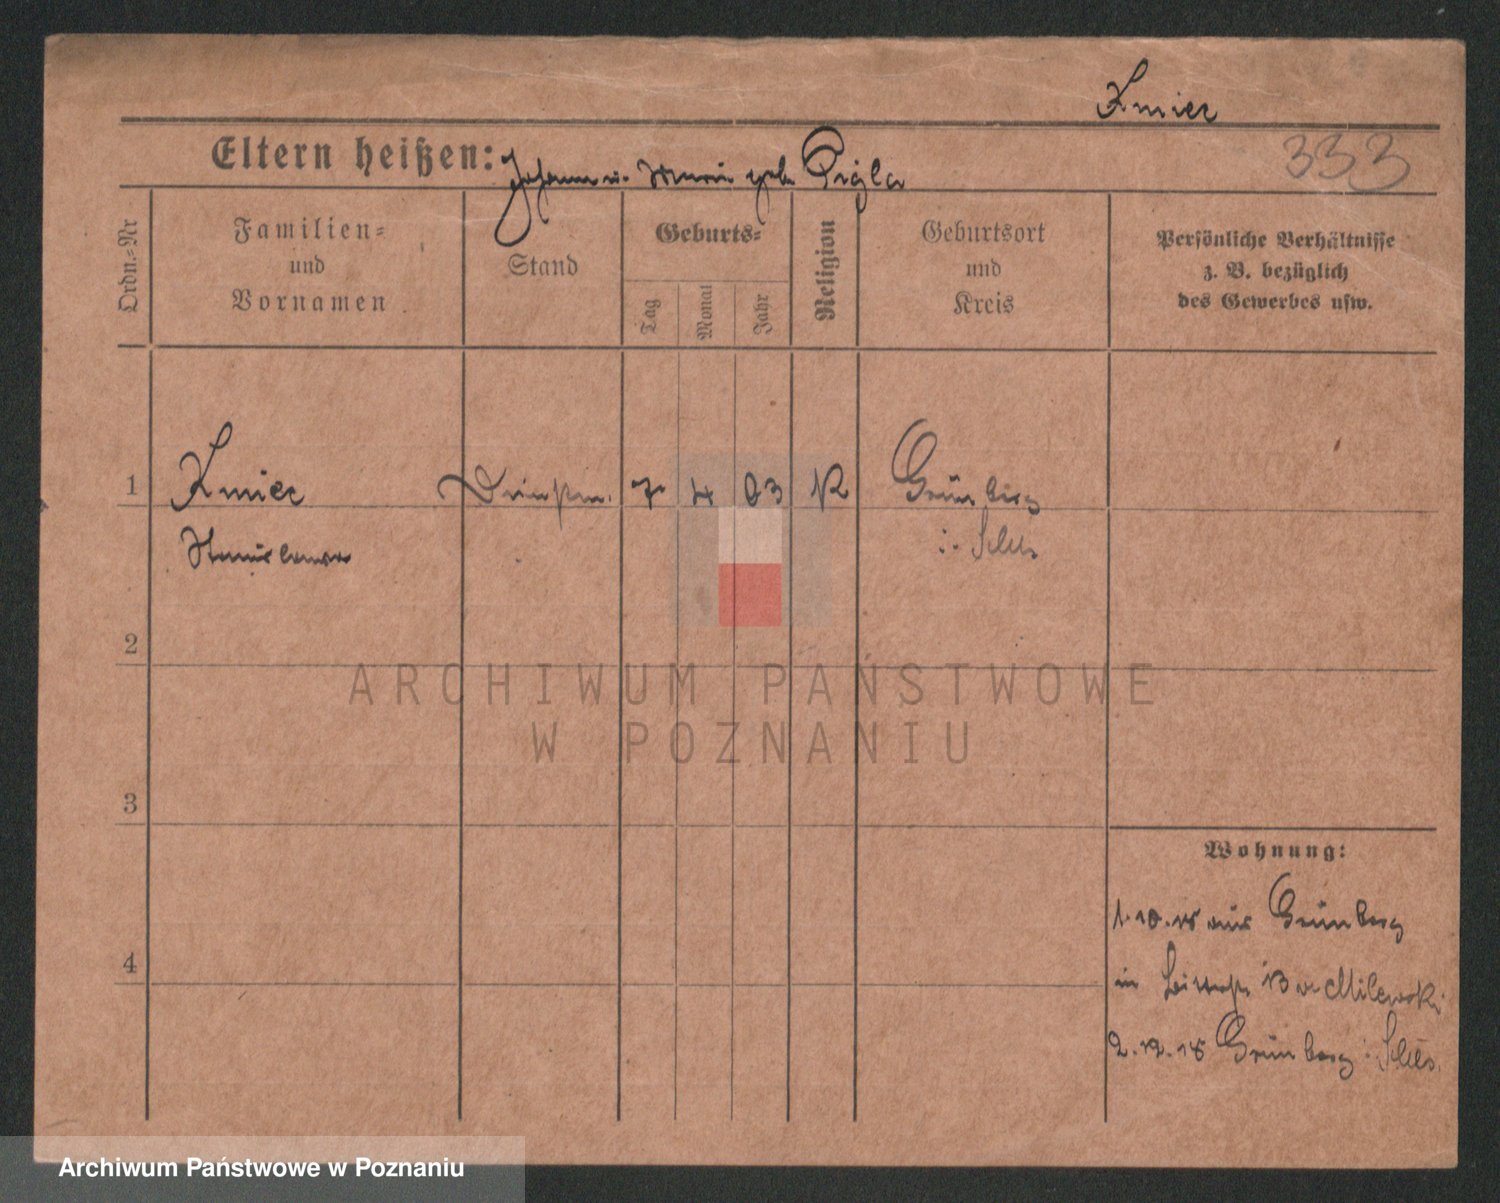 Kmiec
333
Eltern heißen: Johann u. Marie geb. Pigla
Ordn.-Nr
Familien-
und
Vornamen
Stand
Geburts-
Tag
Monat
Jahr
Religion
Geburtsort
und
Kreis
Persönliche Verhältnisse
z. B. bezüglich
des Gewerbes usw.
1 Kmiec 7 4 03 K Grünberg
Stanislawa i. Schles
2
ARCHIWUM PAŃSTWOWE
W POZNANIU
3
Wohnung:
1.10.18 aus Grünberg
4
in 13 Milewski
2.12.18 Grünberg i. Schles.
Archiwum Państwowe w Poznaniu